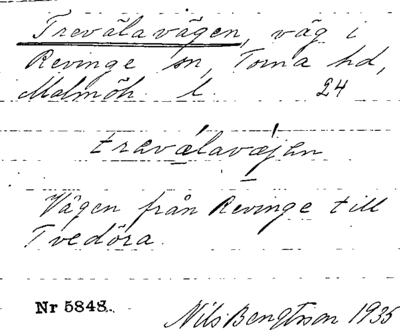 Trevälavägen, väg i
Revinge sn, Torna hd,
Malmöh. l. 24
trevälaväjen
Vägen från Revinge till
Tvedöra.
Nr 5848.
Nils Bengtsson 1935